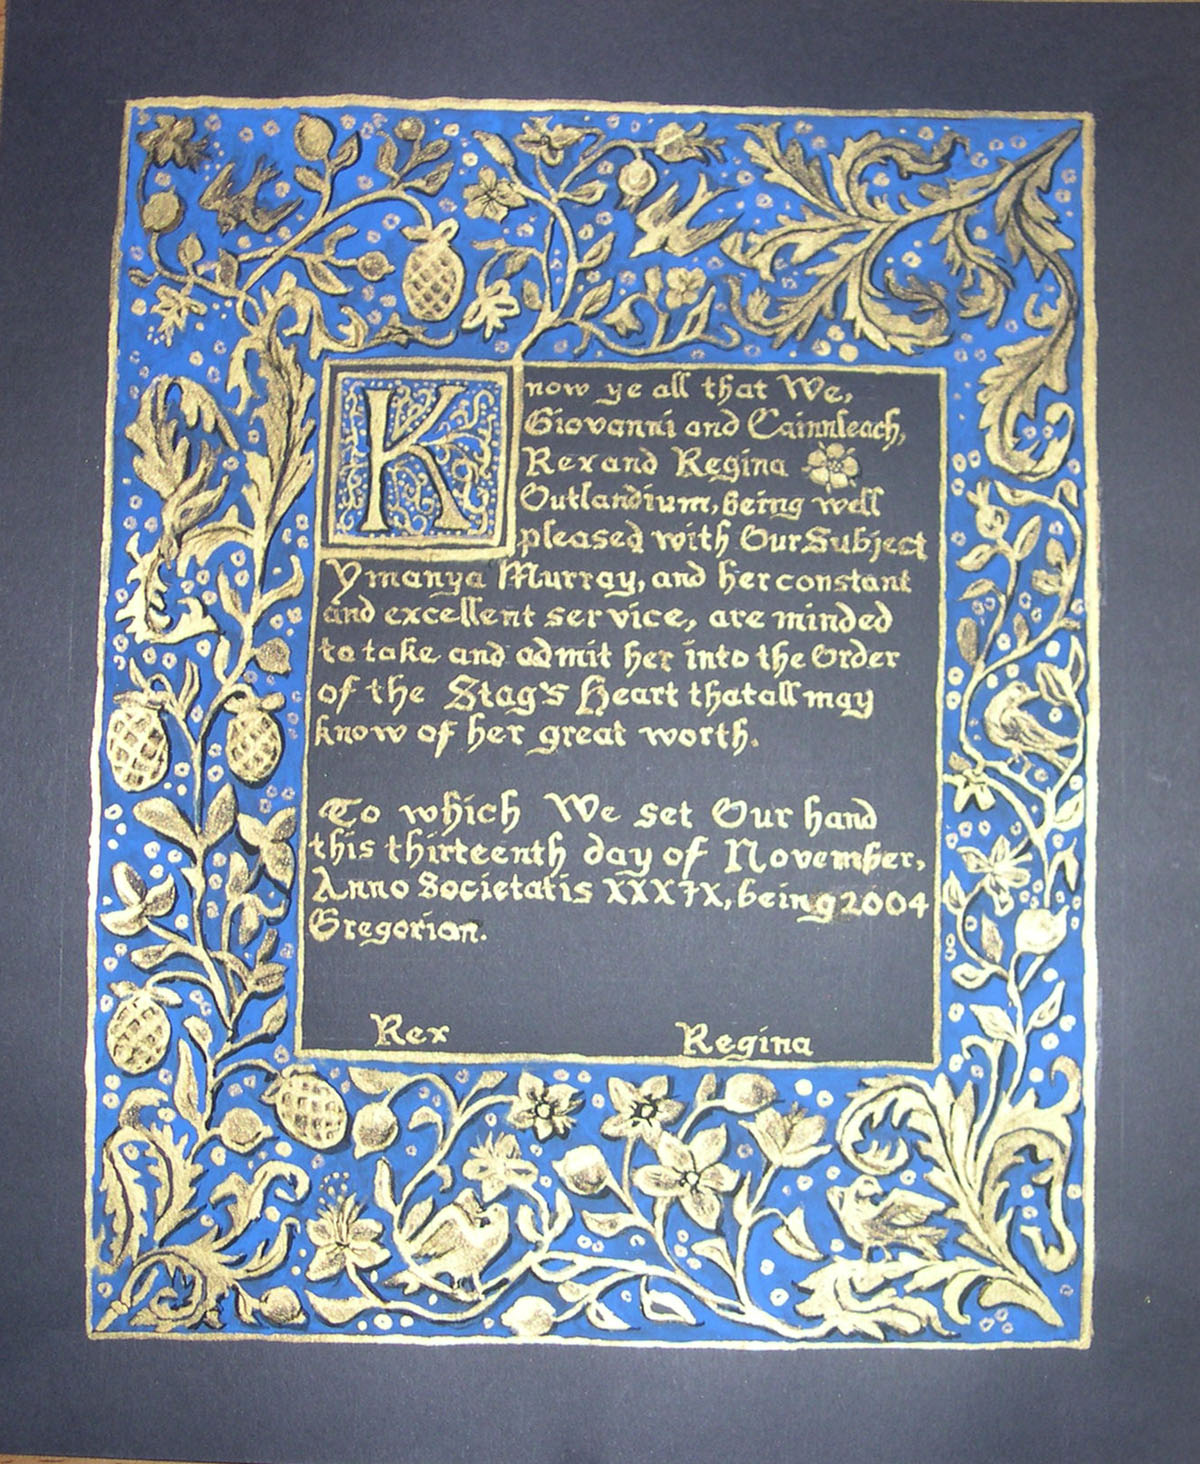 Know ye all that We,
Giovanni and Cainnleach,
Rex and Regina
Outlandium, being well
pleased with Our Subject
Ymanya Murray, and her constant
and excellent service, are minded
to take and admit her into the Order
of the Stag's Heart that all may
know of her great worth.
To which We set Our hand
this thirteenth day of November,
Anno Societatis XXXIX, being 2004
Gregorian.
Rex Regina